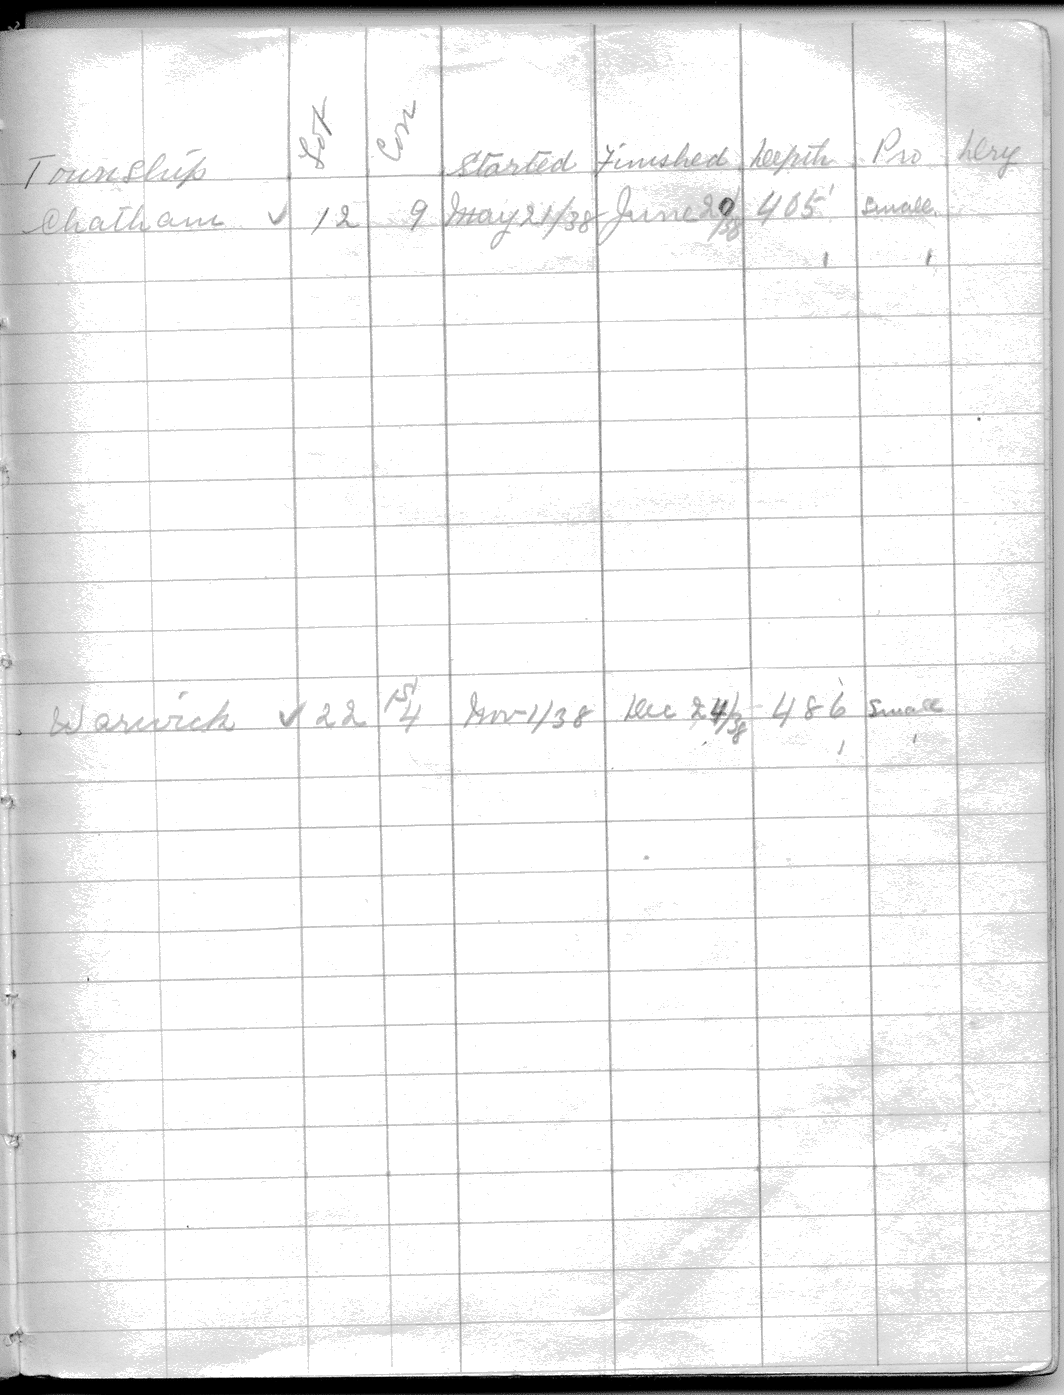 Township Lot Con Started Finished Depth Pro Dry
Chatham ✓ 12 9 May 21/38 June 20/38 405' Small
Warwick ✓ 22 4 Nov 1/38 Dec 24/38 486' Small